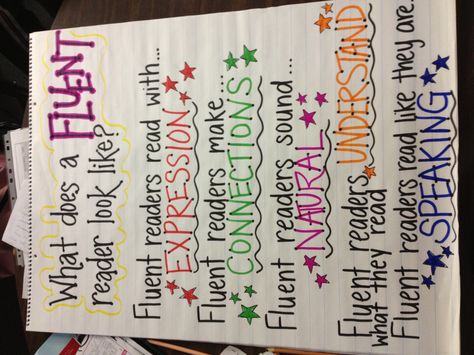 What does a FLUENT
reader look like?
Fluent readers read with...
EXPRESSION
Fluent readers make...
CONNECTIONS
Fluent readers sound...
NATURAL
Fluent readers UNDERSTAND
what they read
Fluent readers read like they are...
SPEAKING